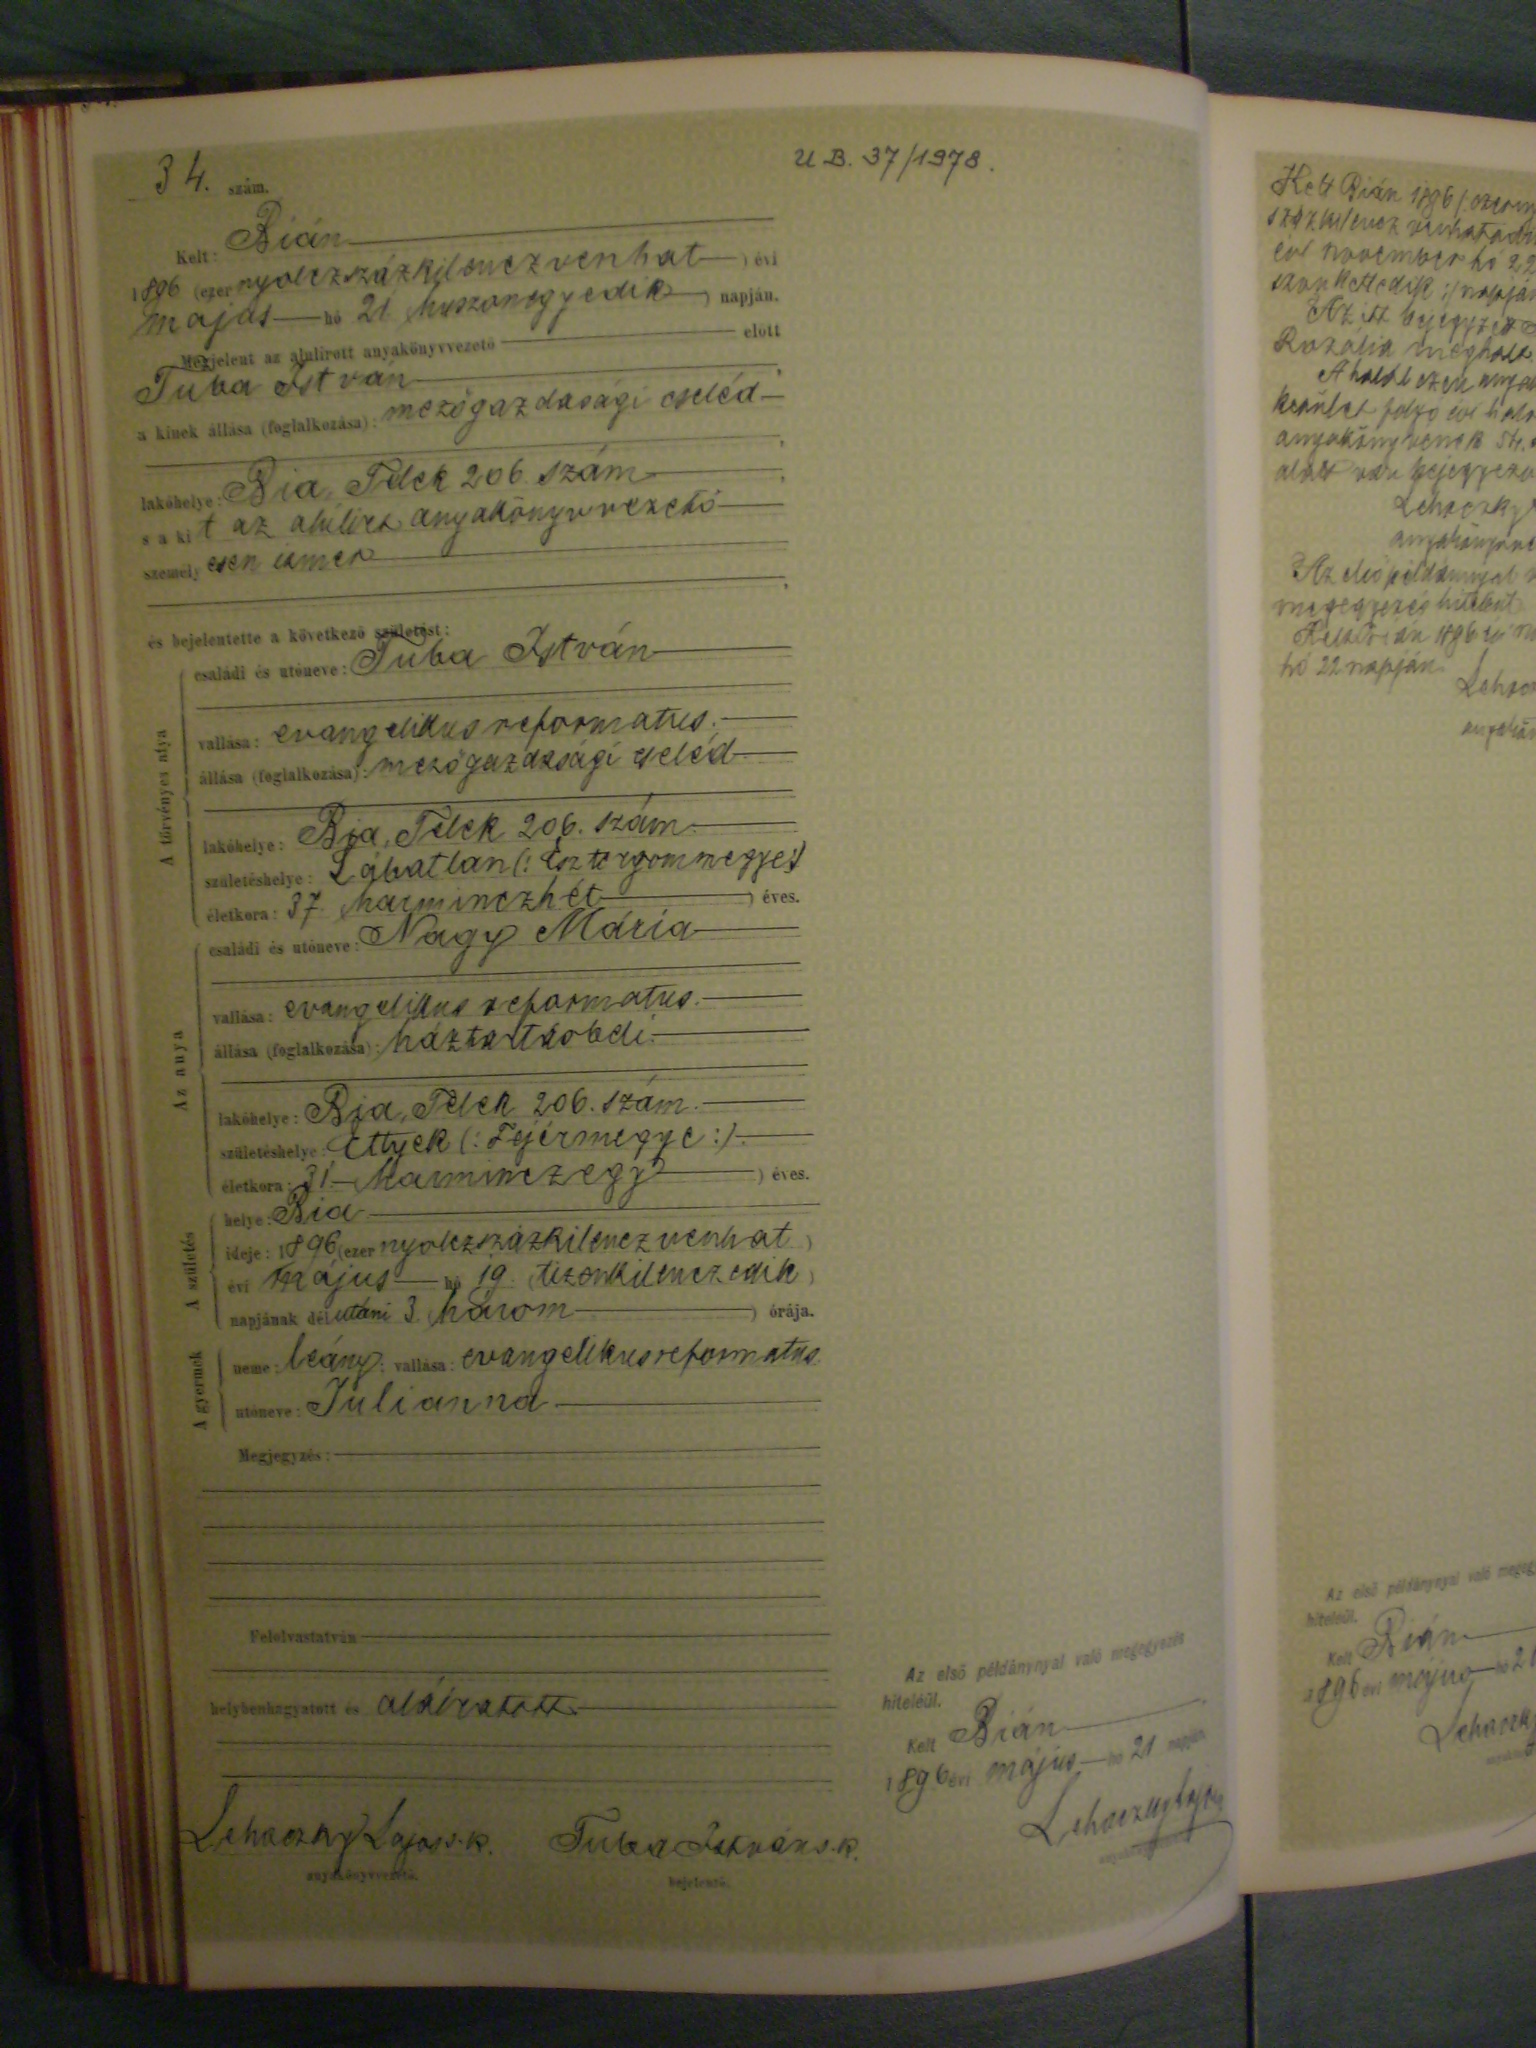 34. szám.
U B. 37/1978.
Kelt: Bián
1896 (ezer nyolczszázkilenczvenhat) évi
május hó 21 (huszonegyedik) napján.
Megjelent az alulirott anyakönyvvezető előtt
Tuba István,
a kinek állása (foglalkozása): mezőgazdasági cseléd
lakóhelye: Bia, Telek 206. szám
s a kit az alulirt anyakönyvvezető
személyesen ismer
és bejelentette a következő születést:
A törvényes atya
családi és utóneve: Tuba István
vallása: evangelikus reformatus.
állása (foglalkozása): mezőgazdasági cseléd
lakóhelye: Bia, Telek 206. szám.
születéshelye: Lábatlan (: Esztergommegye:)
életkora: 37. (harminczhét) éves.
Az anya
családi és utóneve: Nagy Mária
vallása: evangelikus reformatus.
állása (foglalkozása): háztartásbeli.
lakóhelye: Bia, Telek 206. szám.
születéshelye: Ettyek (: Fejérmegye :).
életkora: 31 (harminczegy) éves.
A születés
helye: Bia
ideje: 1896 (ezer nyolczszázkilenczvenhat)
évi május hó 19. (tizenkilenczedik)
napjának délutáni 3. (három) órája.
A gyermek
neme: leány; vallása: evangelikus reformatus
utóneve: Julianna
Megjegyzés:
Felolvastatván
helybenhagyatott és aláiratott
Lehoczky Lajos s.k.
anyakönyvvezető.
Tuba István s.k.
bejelentő.
Az első példánynyal való megegyezés
hiteléül.
Kelt Bián
1896 évi május hó 21 napján
Lehoczky Lajos
Kelt Bián 1896 (:ezer
százkilenczvenhatodik
évi november hó 22
:) napján
Az itt bejegyzett
Rozália meghalt.
A halál ezen
kerület folyó évi
anyakönyvének
alatt van bejegyezve
Lehoczky
Az első példánnyal
megegyezés hiteléül
Kelt Bián 1896 évi
hó 22 napján.
Az első példánynyal való
hiteléül.
Kelt Bián
1896 évi május hó 21
Lehoczky